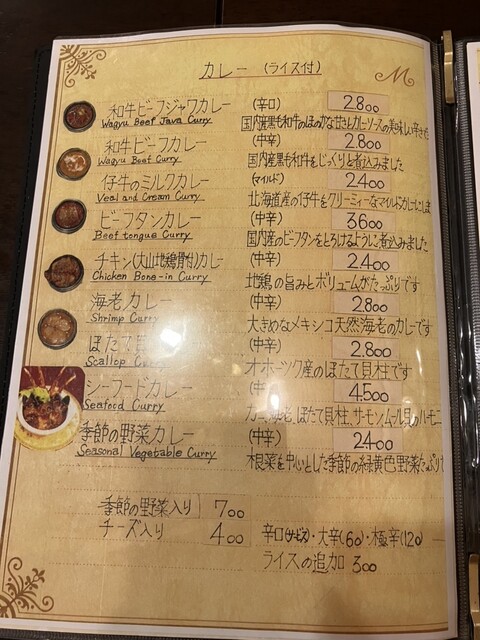 カレー (ライス付)
M
和牛ビーフジャワカレー (辛口) 2800
Wagyu Beef Java Curry
国内産黒毛和牛のほのかな甘さとカレーソースの美味しい辛さを
和牛ビーフカレー (中辛) 2800
Wagyu Beef Curry
国内産黒毛和牛をじっくりと煮込みました
仔牛のミルクカレー (マイルド) 2400
Veal and Cream Curry
北海道産の仔牛をクリーミィーなマイルドカレーにしま
ビーフタンカレー (中辛) 3600
Beef tongue Curry
国内産のビーフタンをとろけるように煮込みました
チキン(大山地鶏骨付)カレー (中辛) 2400
Chicken Bone-in Curry
地鶏の旨みとボリュームがたっぷりです
海老カレー (中辛) 2800
Shrimp Curry
大きめなメキシコ天然海老のカレーです
ほたて貝 (中辛) 2800
Scallop Curry
オホーツク産のほたて貝柱です
シーフードカレー 4500
Seafood Curry
カニ、海老、ほたて貝柱、サーモン、ムール貝のハーモニ
季節の野菜カレー (中辛) 2400
Seasonal Vegetable Curry
根菜を中心とした季節の緑黄色野菜たっぷりで
季節の野菜入り 700
チーズ入り 400
辛口(サービス)・大辛(60)・極辛(120)
ライスの追加 300